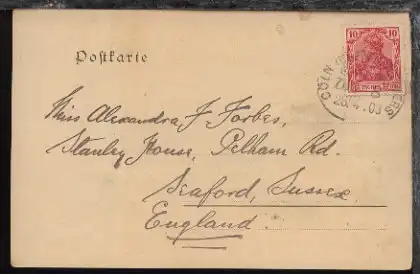 Postkarte
10 10
CÖLN
26.4.03
Miss Alexandra F. Forbes,
Stanley House, Pelham Rd.
Seaford, Sussex
England.